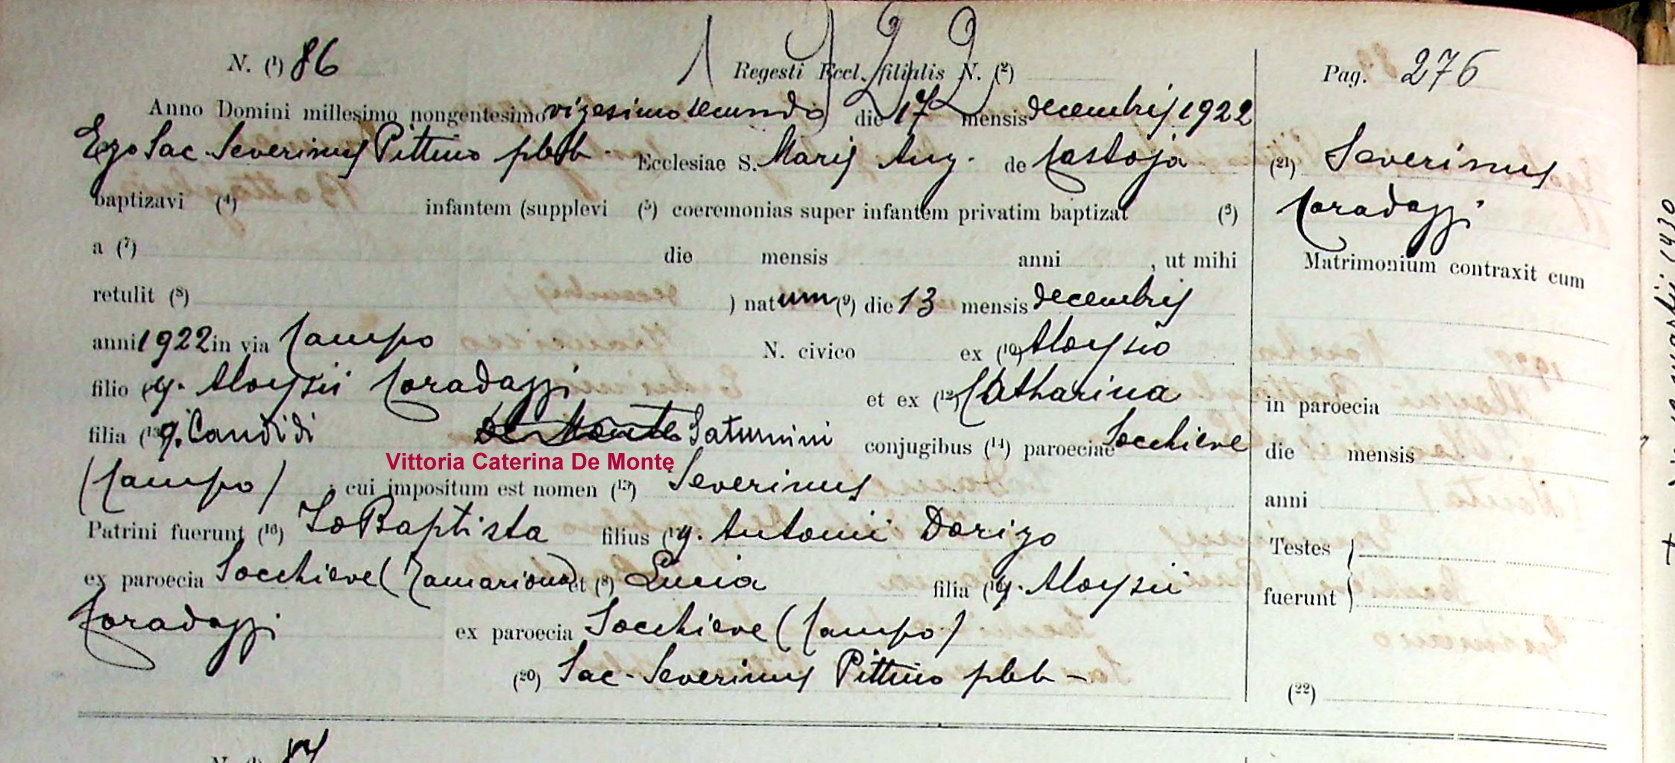 1922
N. (1) 86 Regesti Eccl. filialis N. (2) Pag. 276
Anno Domini millesimo nongentesimo vigesimo secundo die 17 mensis decembris 1922
Ego Sac. Severinus Pittino pleb. Ecclesiae S. Maris Ang. de Castoja (21) Severinus
baptizavi (4) infantem (supplevi (5) coeremonias super infantem privatim baptizat (6) Coradazzi
a (7) die mensis anni , ut mihi Matrimonium contraxit cum
retulit (8) ) natum (9) die 13 mensis decembris
anni 1922 in via Campo N. civico ex (10) Aloysio
filio q. Aloysii Coradazzi et ex (12) Catharina in paroecia
filia (13) q. Candidi Saturnini conjugibus (14) paroeciae Socchieve die mensis
Vittoria Caterina De Monte
(Campo) ; cui impositum est nomen (15) Severinus anni
Patrini fuerunt (16) Jo Baptista filius (17) q. Antonii Dorigo Testes
ex paroecia Socchieve ( et (18) Lucia filia (19) q. Aloysii fuerunt
Coradazzi ex paroecia Socchieve (Campo)
(20) Sac. Severinus Pittino pleb - (22)
N. (1) 87